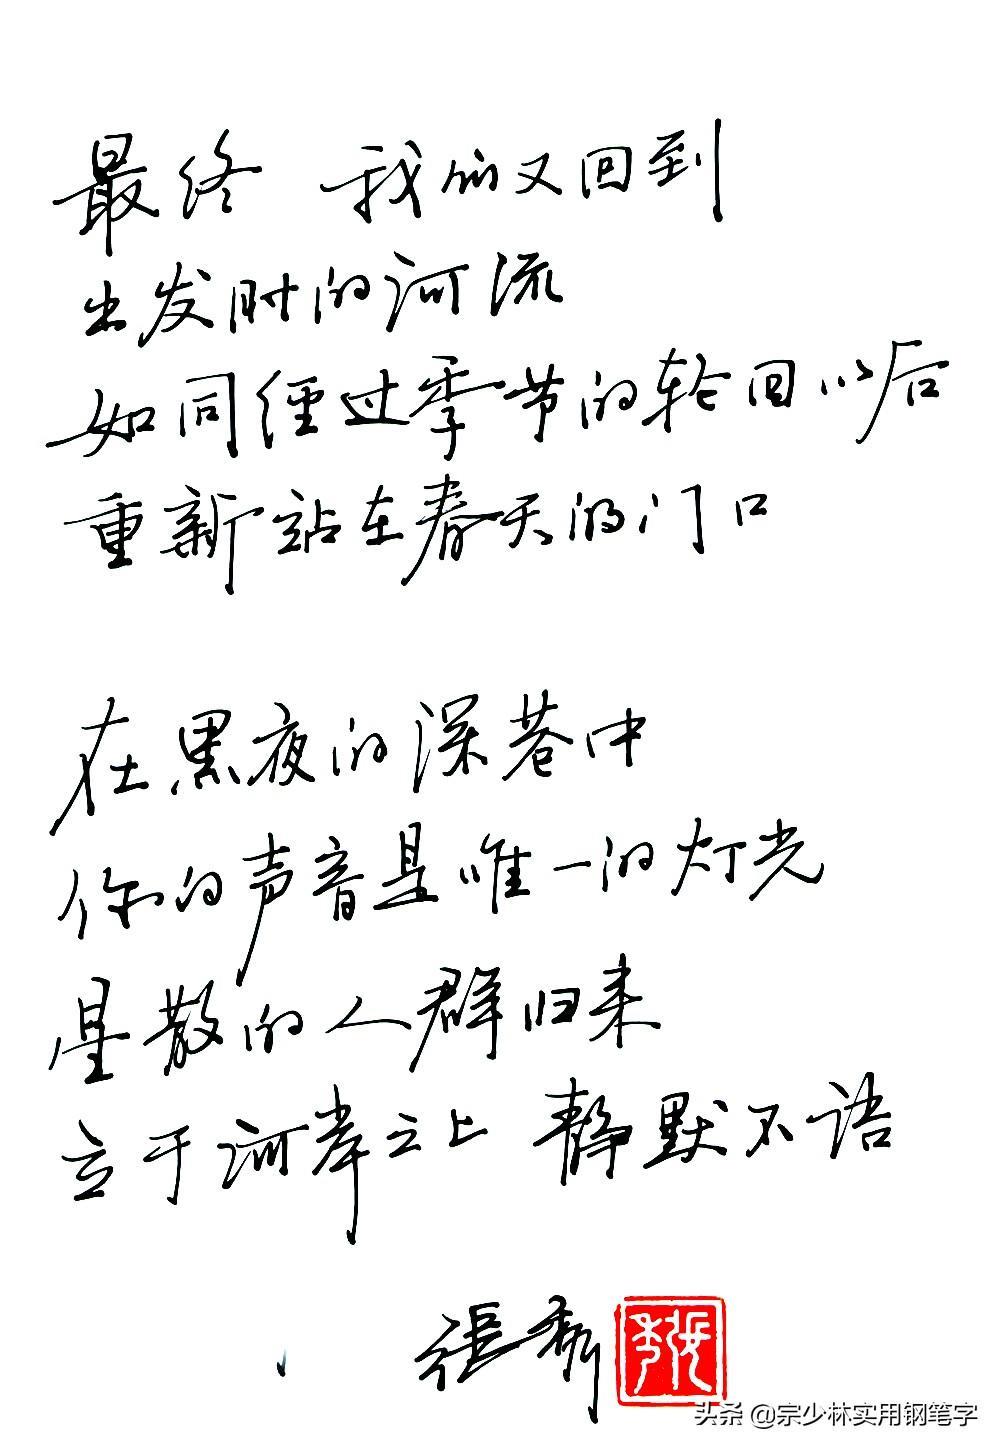 最终 我们又回到
出发时的河流
如同经过季节的轮回以后
重新站在春天的门口
在黑夜的深巷中
你的声音是唯一的灯光
星散的人群归来
立于河岸之上 静默不语
张秀
头条 @宗少林实用钢笔字